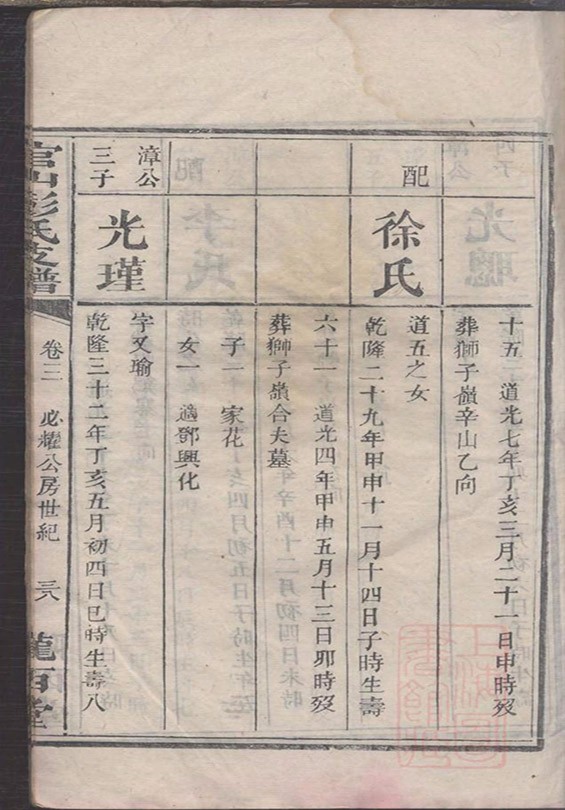 十五　道光七年丁亥三月二十一日申時歿
葬獅子嶺辛山乙向
配
徐氏
道五之女
乾隆二十九年甲申十一月十四日子時生壽
六十一　道光四年甲申五月十三日卯時歿
葬獅子嶺合夫墓
子一　家花
女一　適鄧興化
漳公
三子
光瑾
字又瑜
乾隆三十二年丁亥五月初四日巳時生壽八
官山彭氏支譜
卷三　必耀公房世紀
龍百堂